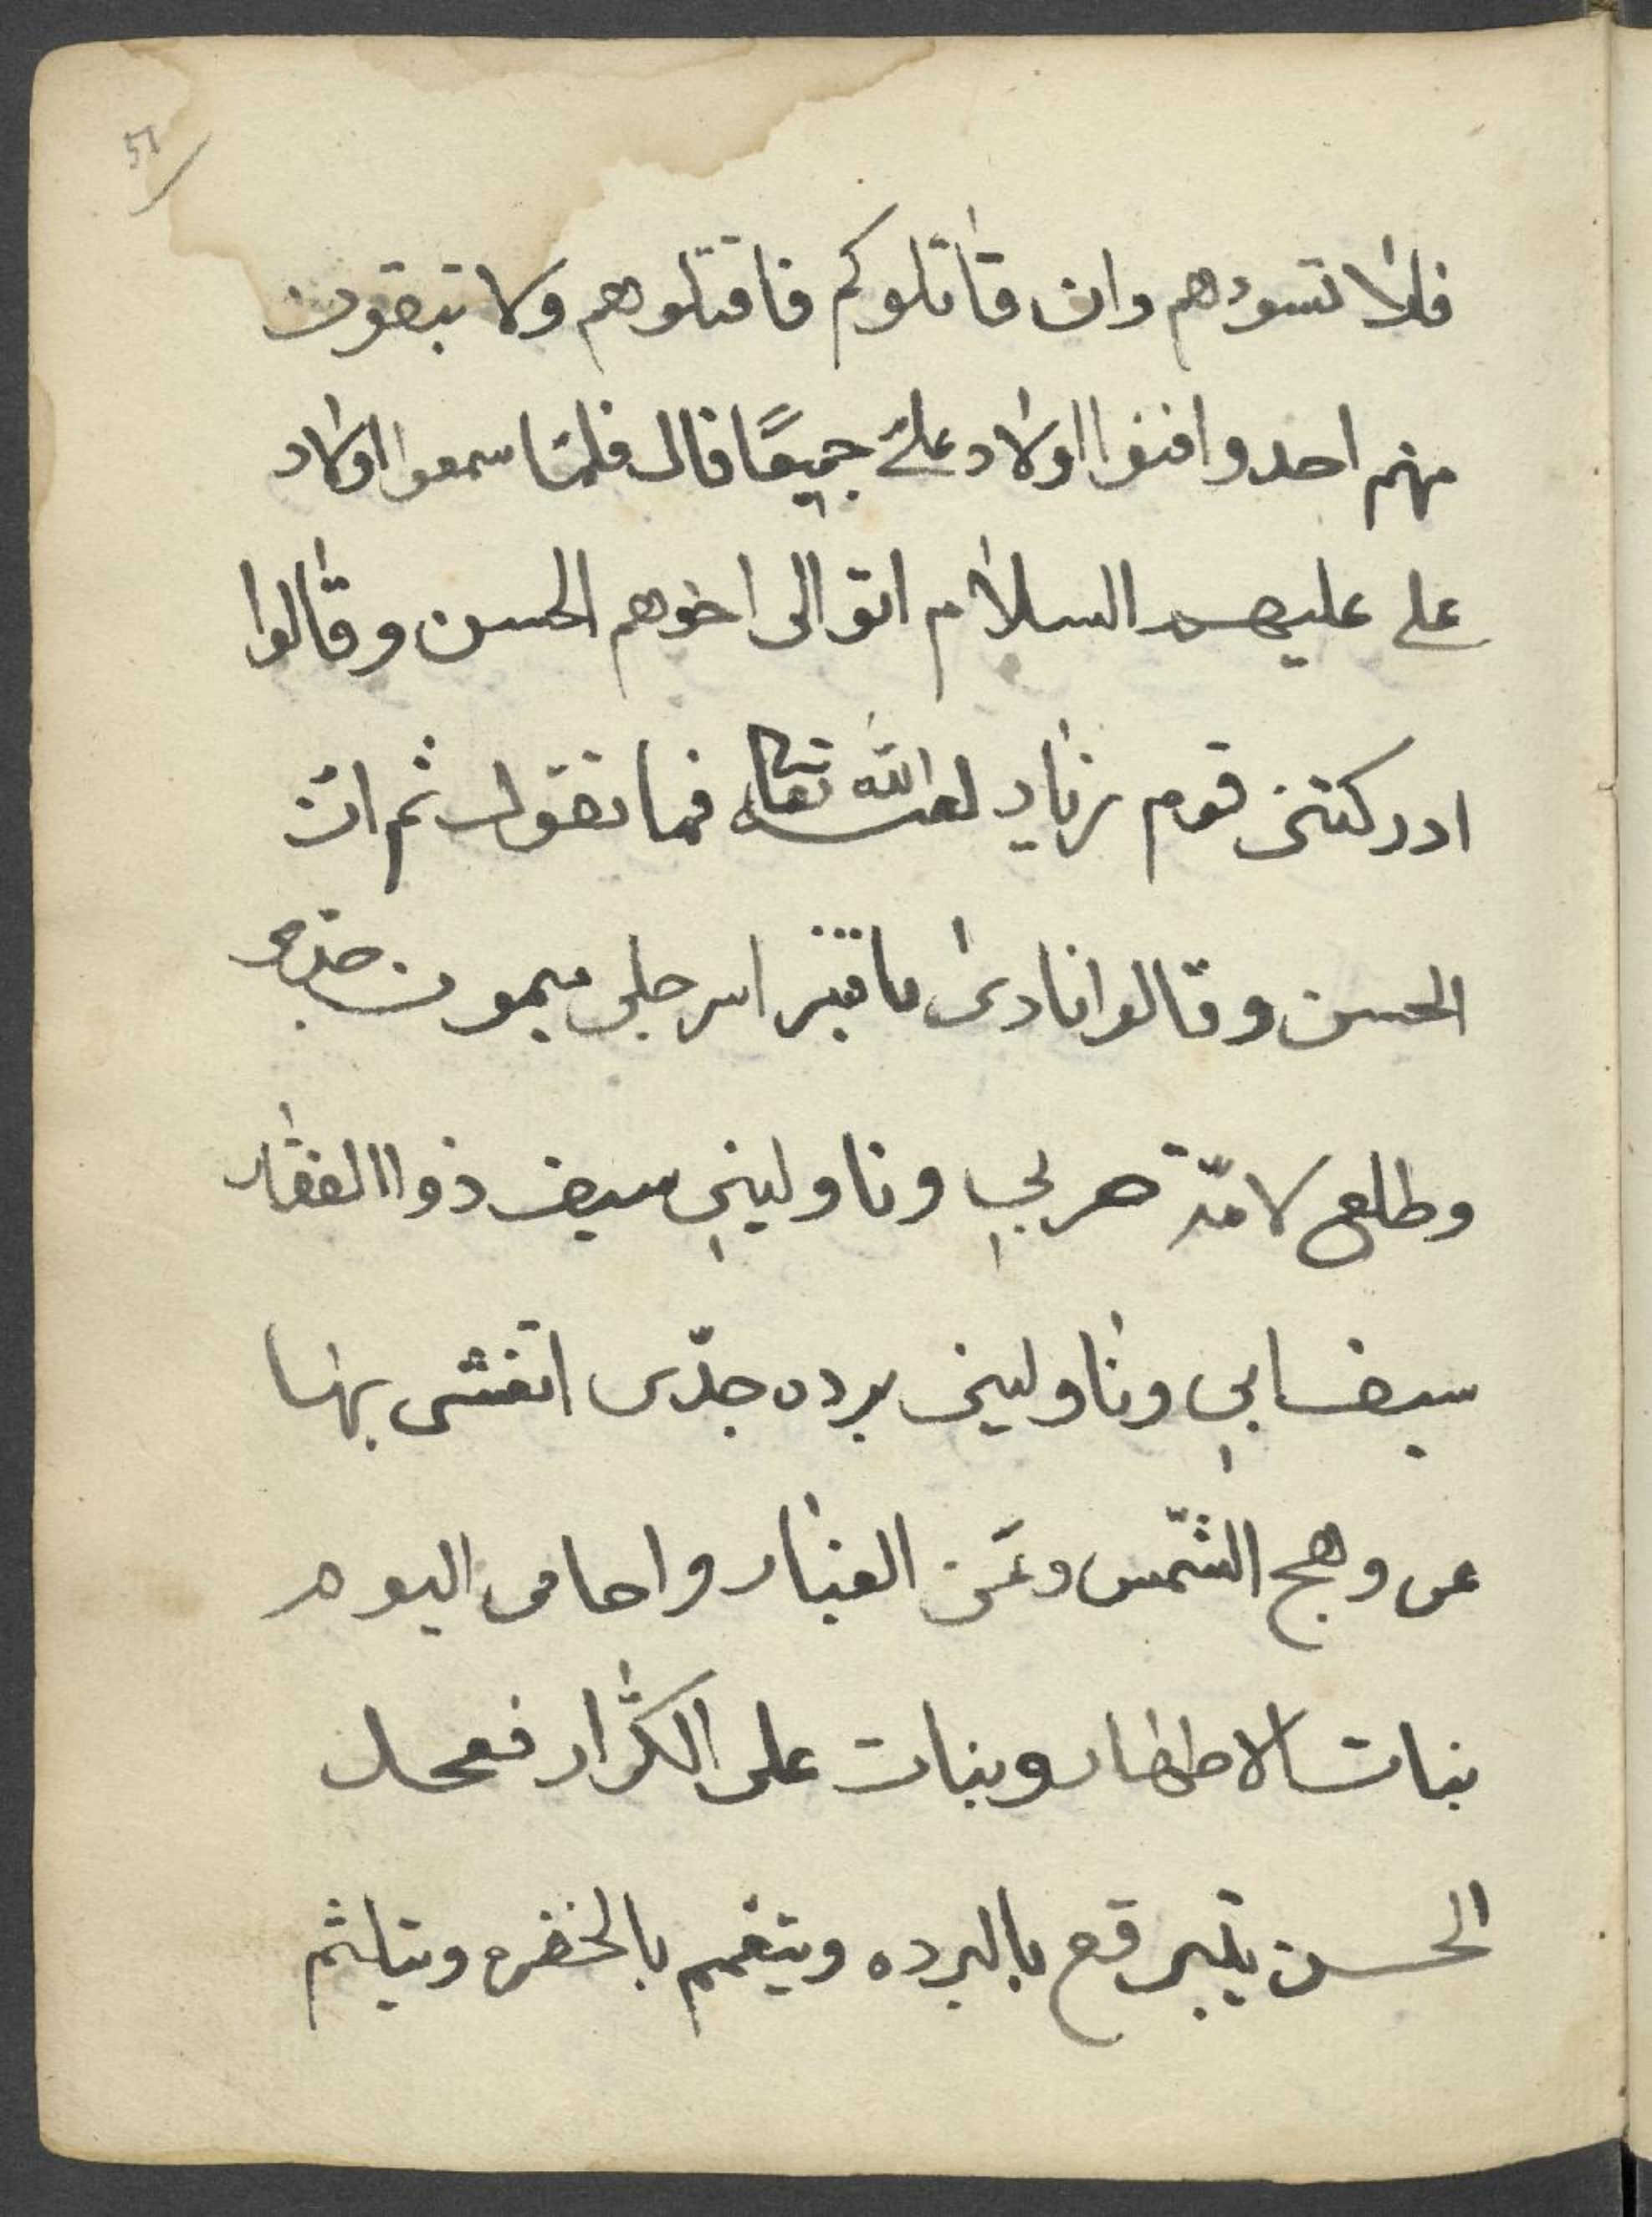 51
فلا تسؤهم وان قاتلوكم فاقتلوهم ولا تبقون
منهم احد وافنوا اولاد علي جميعًا قال فلمّا سمعوا اولاد
على عليهم السلام اتو الى اخوهم الحسن وقالوا
ادركتنى قوم زياد لعنه الله تعالى فما تقول ثم ان
الحسن وقالوا نادى يا قنبر اسرجلى ميمون
وطلع لامّة حربي وناوليني سيف ذوا الفقار
سيف ابي وناولينى برده جدّى اتغشى بها
عن وهج الشّمس وعَن الغبار واحامى اليوم
بنات الاطهار وبنات على الكرّار فعجل
الحسن يتبرقع بالبرده ويتعمم بالخضره ويتلثم